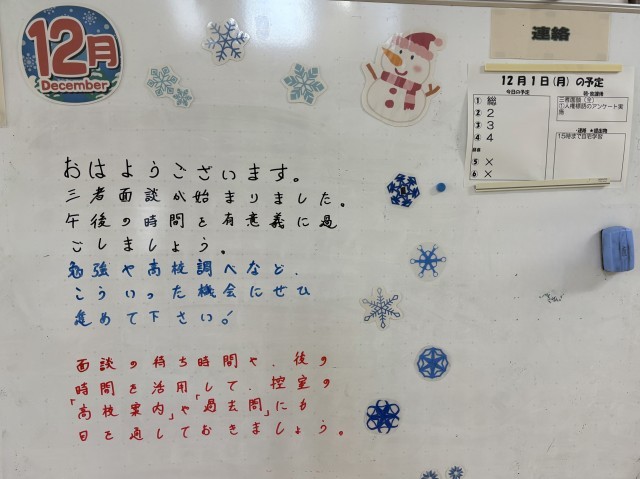 12月
December
おはようございます。
三者面談が始まりました。
午後の時間を有意義に過
ごしましょう。
勉強や高校調べなど、
こういった機会にぜひ
進めて下さい!
面談の待ち時間や、後の
時間を活用して、控室の
「高校案内」や「過去問」にも
目を通しておきましょう。
連絡
12月1日(月)の予定
今日の予定
① 総
② 2
③ 3
④ 4
⑤ ×
⑥ ×
三者面談(全)
①人権標語のアンケート実
施
15時まで自宅学習